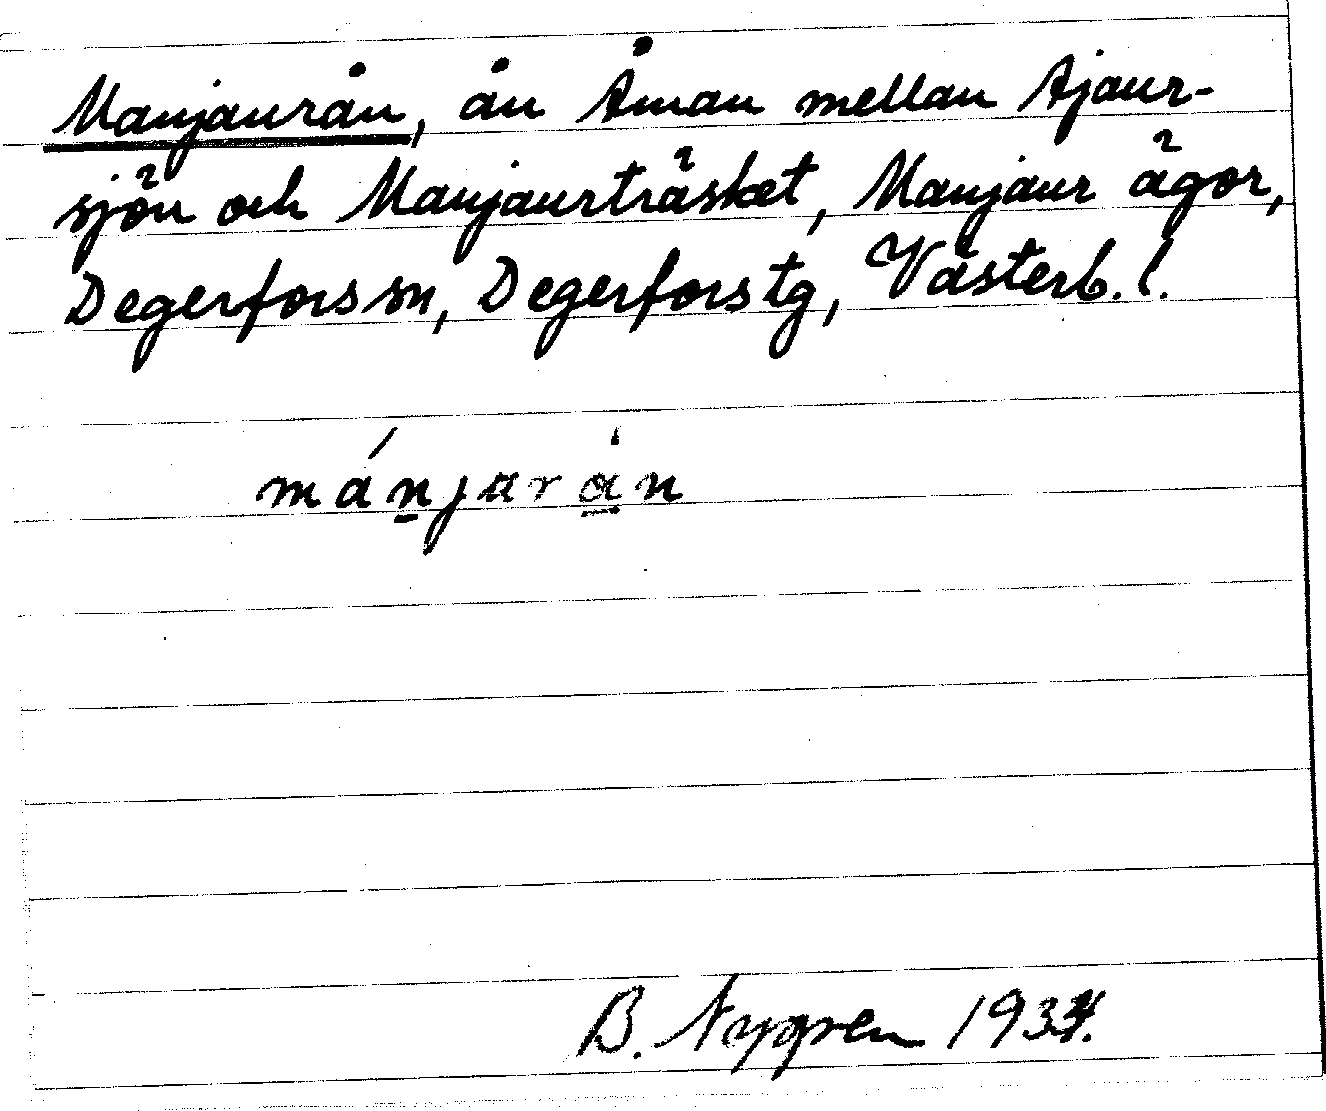 Manjaurån, ån Åman mellan Ajaur-
sjön och Manjaurträsket, Manjaur ägor,
Degerfors sn, Degerfors tg, Västerb. l.
mánjarån
B. Nygren 1934.